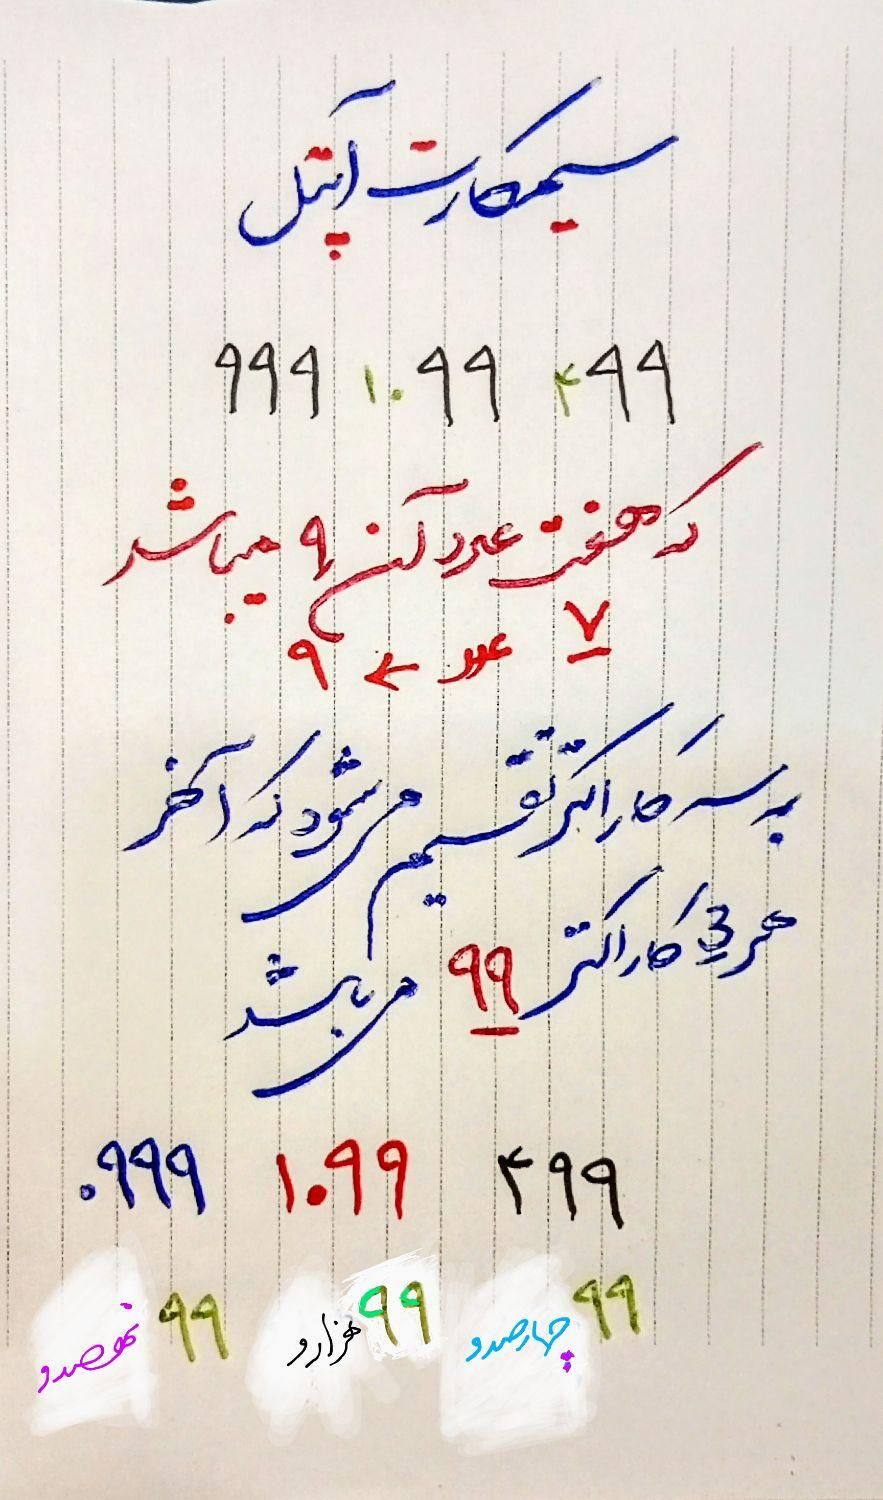 سیمکارت آپتل
۹۹۹ ۱۰۹۹ ۴۹۹
که هفت عدد آن ۹ میباشد
۷ عدد ← ۹
به سه کاراکتر تقسیم می شود که آخر
هر 3 کاراکتر ۹۹ می باشد
۰۹۹۹ ۱۰۹۹ ۴۹۹
نهصدو ۹۹ هزارو ۹۹ چهارصدو ۹۹